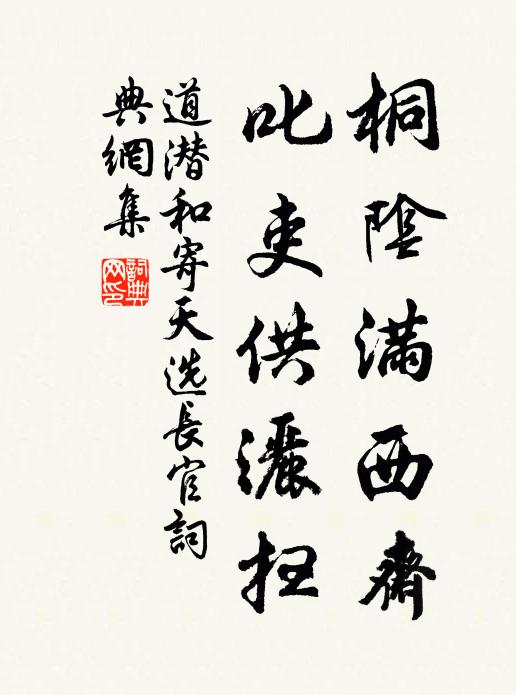 桐陰滿西齋
叱吏供灑扫
道潜和寄天选長官詞
典網集
詞典网印